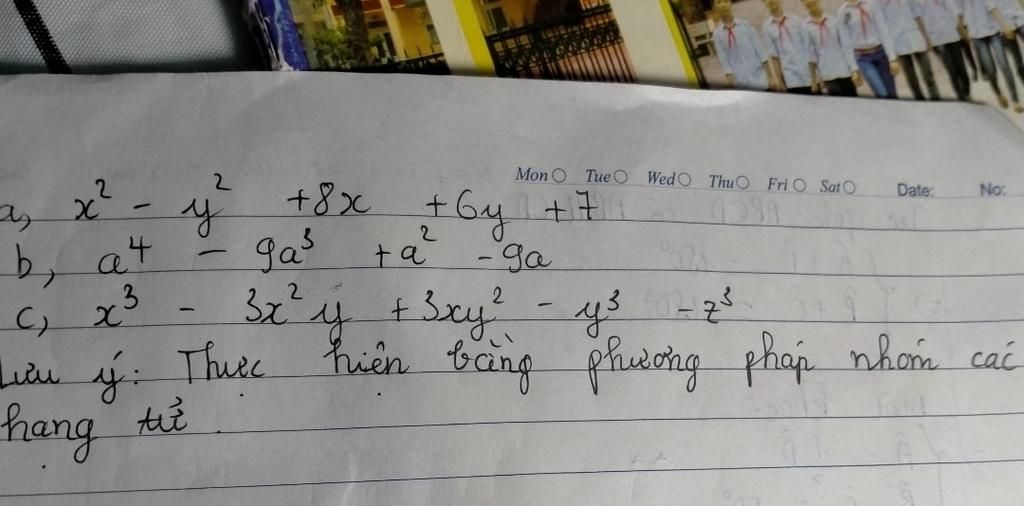 Mon Tue Wed Thu Fri Sat Date: No:
a, x² - y² +8x +6y +7
b, a⁴ - 9a³ +a² -9a
c, x³ - 3x²y +3xy² - y³ -z³
Lưu ý: Thực hiện bằng phương pháp nhóm các
hạng tử.